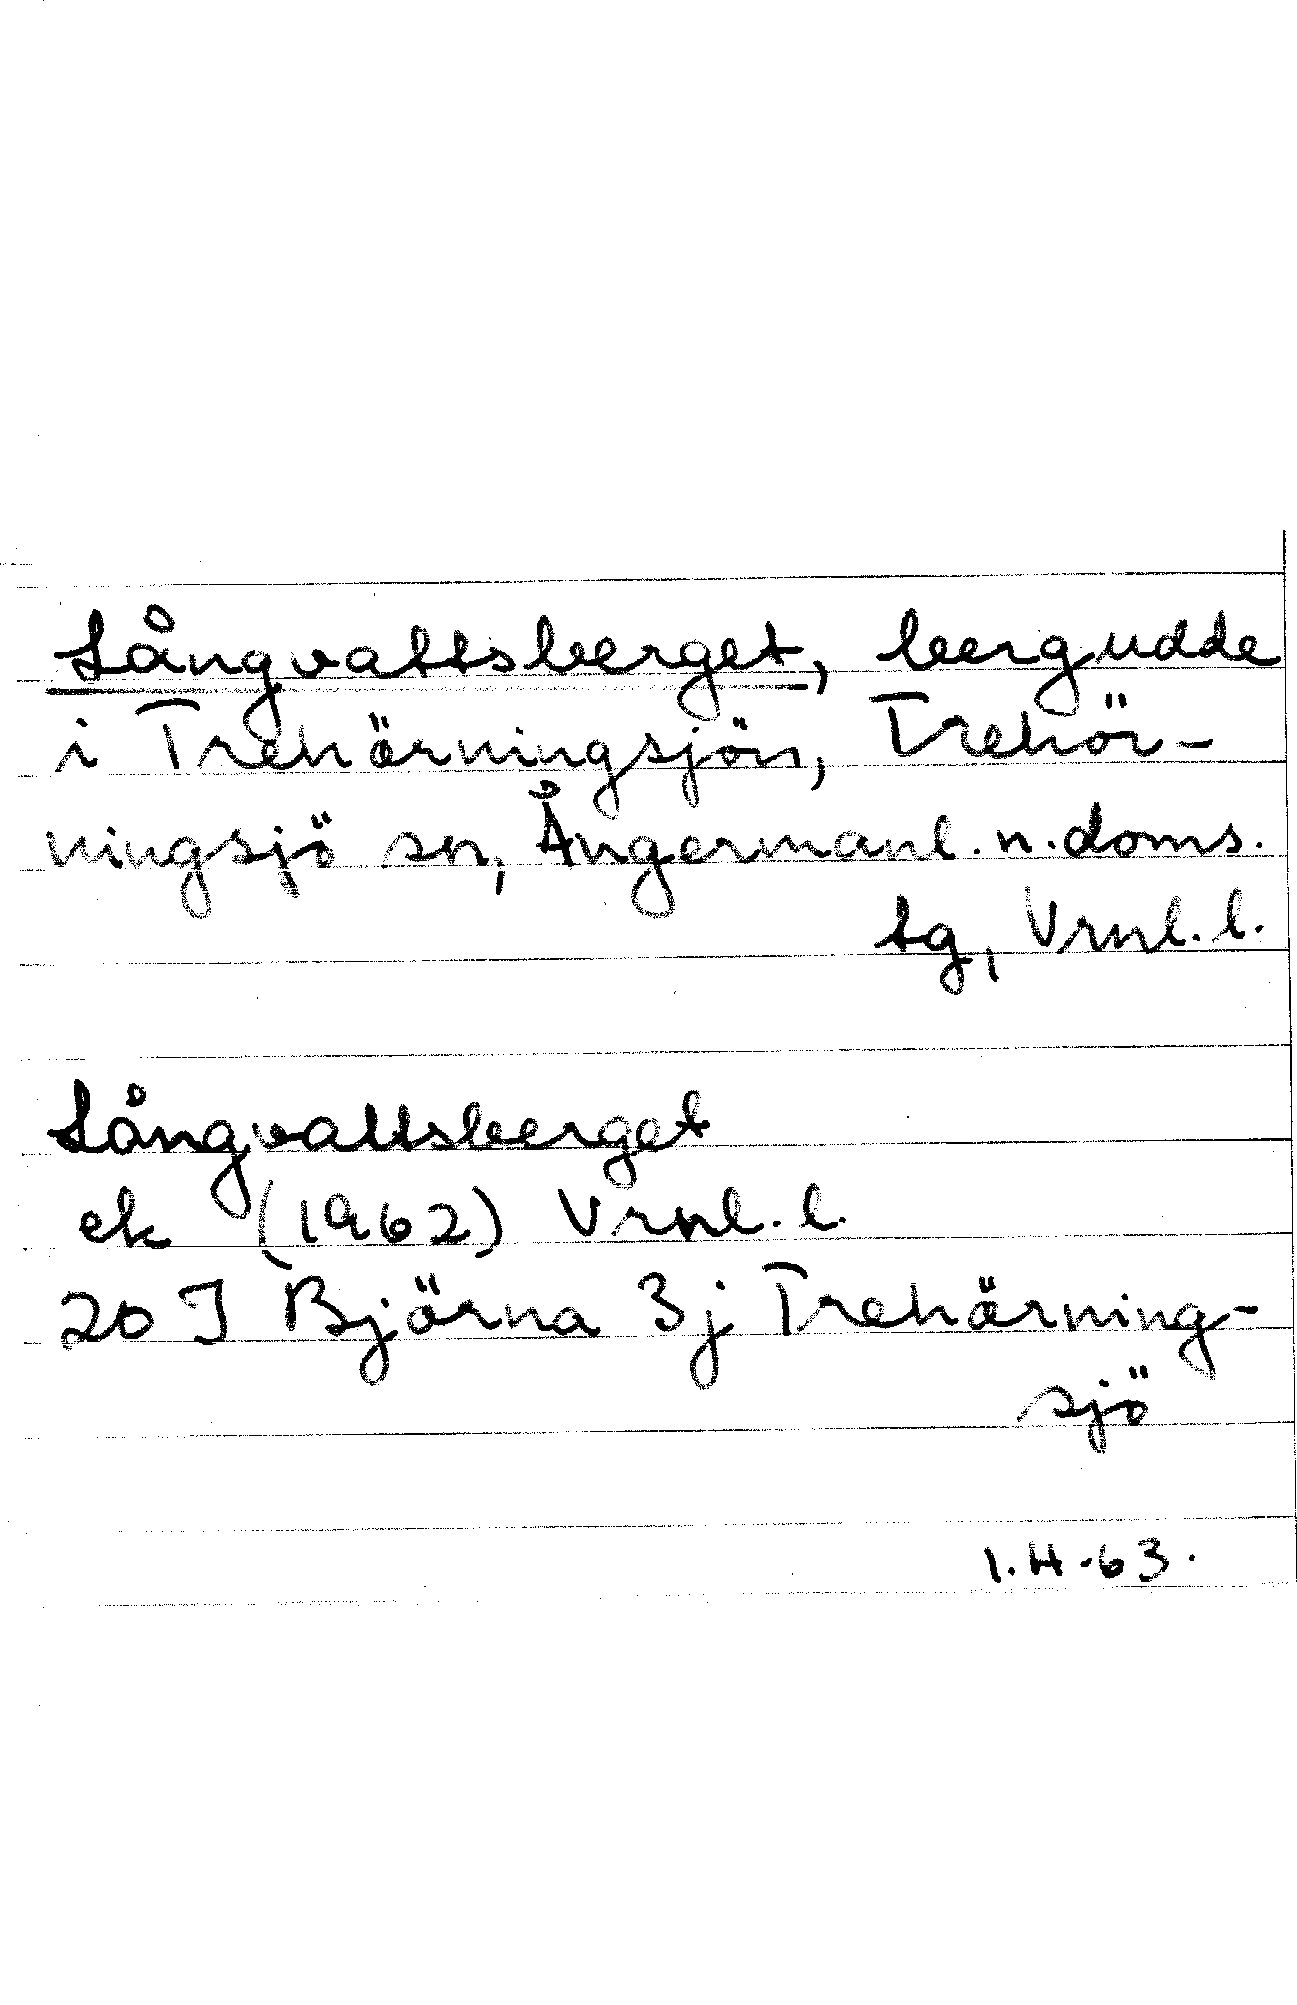 Långvattsberget, bergudde
i Trehörningsjön, Trehör-
ningsjö sn, Ångermanl. n. doms.
tg, Vrnl. l.
Långvattsberget
ek (1962) Vrnl. l.
20 J Björna 3j Trehörning-
sjö
1.H.63.